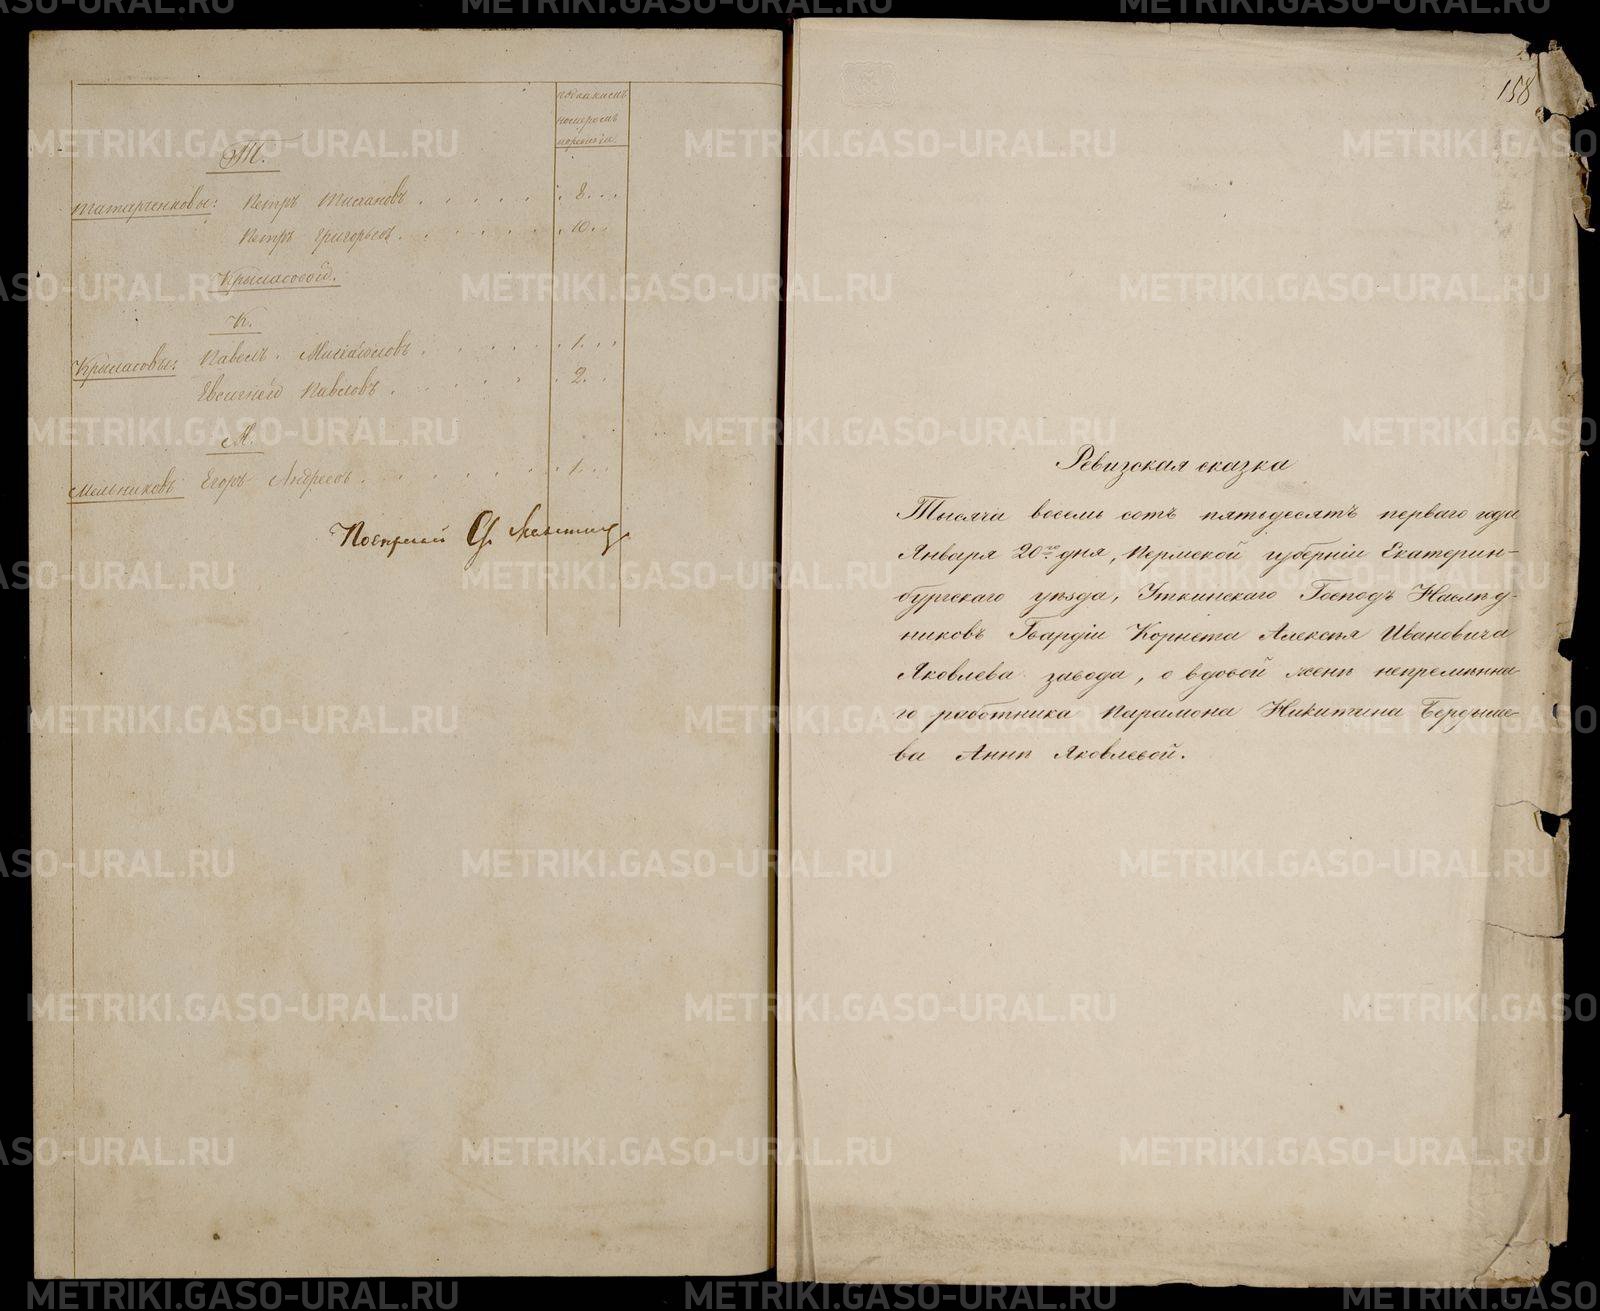 подъ какимъ
номеромъ
Т.
Татарченковы: Петръ . . . . . 8 . . .
Петръ Григорьевъ . . . . . 10 . .
Крыласовой.
К.
Крыласовы: Павелъ . . . . . 1 . . .
Евсигней Павловъ . . . . . 2 . .
М.
Мельниковъ Егоръ Андреевъ . . . . . 1 . . .
158
Ревизская сказка
Тысяча восемь сотъ пятьдесятъ перваго года
Января 20го дня, Пермской губерніи Екатерин-
бургскаго уѣзда, Уткинскаго Господъ Наслѣд-
никовъ Гвардіи Корнета Алексѣя Ивановича
Яковлева завода, о вдовой женѣ непремѣнна-
го работника Парамона Никитина Бердыше-
ва Аннѣ Яковлевой.
METRIKI.GASO-URAL.RU